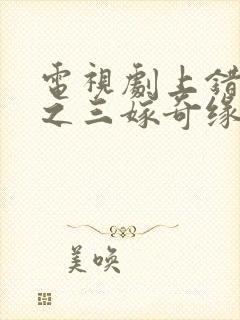 電視劇上錯
之三嫁奇缘
美唤